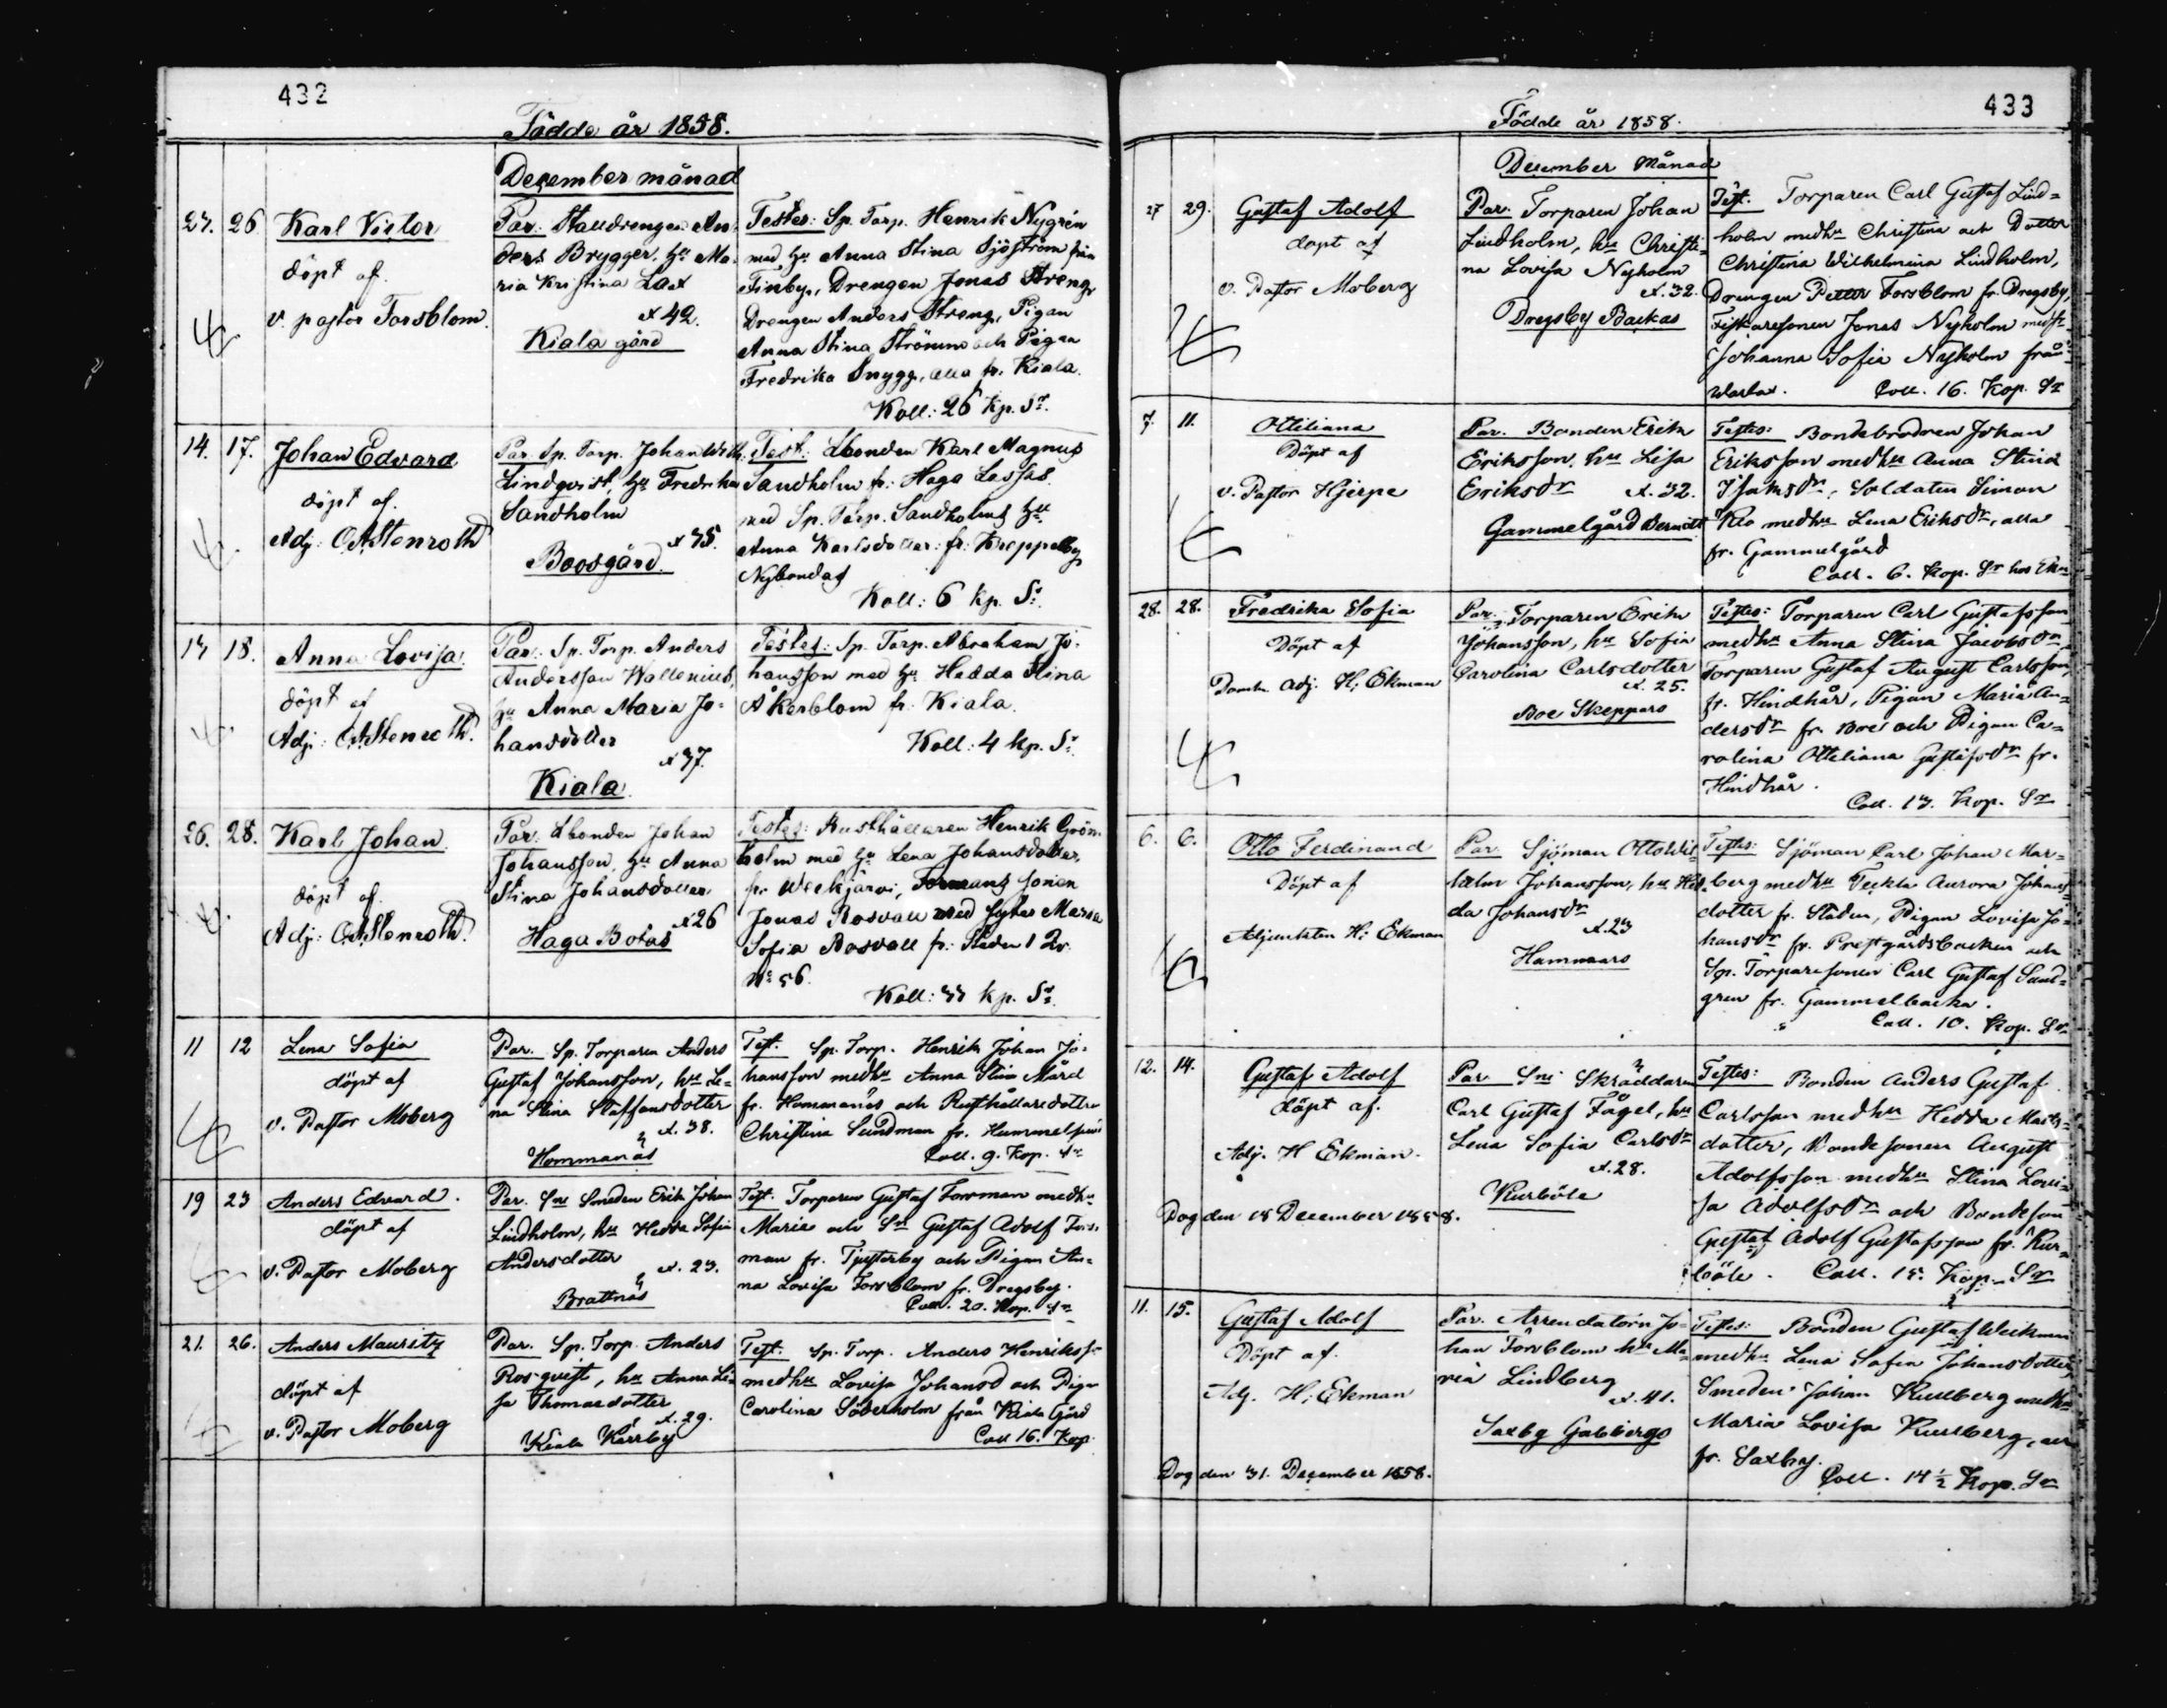 432
Födde år 1858.
December månad
23. 26 Karl Victor
döpt af
v. pastor Forsblom.
Par. Stalldrengen An-
ders Brygger, hu Ma-
ria Kristina Lax
x 42.
Kiala gård
Testes: Sp. Torp. Henrik Nygrén
med hu Anna Stina Sjöström från
Finby, Drengen Jonas Streng,
Drengen Anders Streng, Pigan
Anna Stina Ström och Pigan
Fredrika Snygg, alla fr. Kiala.
Koll: 26 kp. Sr.
14. 17. Johan Edvard
döpt af
Adj: O.A. Stenroth
Par. Sp. Torp. Johan Wilh.
Lindqvist, hu Fredrika
Sandholm
x 35.
Boosgård.
Test: Bonden Karl Magnus
Sandholm fr. Haga Lassas
med Sp. Torp. Sandholms hu
Anna Karlsdotter fr. Kroppelby
Nybondas
Koll: 6 kp. Sr.
13 18. Anna Lovisa
döpt af
Adj: O.A. Stenroth.
Par: Sp. Torp. Anders
Andersson Wallenius,
hu Anna Maria Jo-
hansdotter
x 37.
Kiala
Testes: Sp. Torp. Abraham Jo-
hansson med hu Hedda Stina
Åkerblom fr. Kiala.
Koll: 4 kp. Sr.
26. 28. Karl Johan
döpt af
Adj: O.A. Stenroth.
Par: Bonden Johan
Johansson, hu Anna
Stina Johansdotter
x 26
Haga Botas
Testes: Rusthållaren Henrik Grön-
holm med hu Lena Johansdotter,
fr. Weckjärvi, Formans sonen
Jonas Rosvall med syster Maria
Sofia Rosvall fr. Staden 1 Qv.
No 56.
Koll: 33 kp. Sr.
11 12 Lena Sofia
döpt af
v. Pastor Moberg
Par. Sp. Torparen Anders
Gustaf Johansson, hu Le-
na Stina Staffansdotter
x. 38.
Hommanäs
Test. Sp. Torp. Henrik Johan Jo-
hansson med hu Anna Stina Mård
fr. Hommanäs och Rusthållaredottren
Christina Sundman fr. Hummel
Coll. 9. Kop. Sr
19 23 Anders Edvard.
döpt af
v. Pastor Moberg
Par. Sne Smeden Erik Johan
Lindholm, hu Hedda Sofia
Andersdotter
x. 23.
Brattnäs
Test. Torparen Gustaf Forsman med hu
Maria och Sn Gustaf Adolf Fors-
man fr. Tjusterby och Pigan An-
na Lovisa Forsblom fr. Dregsby.
Coll. 20. Kop. Sr
21. 26. Anders Mauritz
döpt af
v. Pastor Moberg
Par. Sp. Torp. Anders
Rosqvist, hu Anna Li-
sa Thomasdotter
x. 29.
Kiala Kärrby
Test. Sp. Torp. Anders Henrikss.
med hu Lovisa Johansd och Pigan
Carolina Söderholm från Kiala Gård
Coll 16. Kop.
433
Födde år 1858.
December Månad
27 29. Gustaf Adolf
döpt af
v. Pastor Moberg
Par. Torparen Johan
Lindholm, hu Christi-
na Lovisa Nyholm
x. 32.
Dregsby Backas
Test. Torparen Carl Gustaf Lind-
holm med hu Christina och Dotter
Christina Wilhelmina Lindholm,
Drengen Petter Forsblom fr. Dregsby,
Fiskaresonen Jonas Nyholm med
Johanna Sofia Nyholm från
Warlax. Coll. 16. Kop. Sr
7. 11. Ottiliana
Döpt af
v. Pastor Hjerpe
Par. Bonden Erik
Eriksson, hu Lisa
Eriksdr x. 32.
Gammelgård Berndts
Testes: Bondebrodren Johan
Eriksson med hu Anna Stina
Isaksdr, Soldaten Simon
Klo med hu Lena Eriksdr, alla
fr. Gammelgård
Coll. 6. Kop. Sr hos Ekn
28. 28. Fredrika Sofia
Döpt af
Domk. Adj. H: Ekman
Par. Torparen Erik
Johansson, hu Sofia
Carolina Carlsdotter
x. 25.
Boe Skeppars
Testes: Torparen Carl Gustafsson
med hu Anna Stina Jacobsdr,
Torparen Gustaf August Carlsson,
fr. Hindhår, Pigan Maria An-
dersdr fr. Boe och Pigan Ca-
rolina Ottiliana Gustafsdr fr.
Hindhår.
Coll. 13. Kop. Sr
6. 6. Otto Ferdinand
Döpt af
Adjunkten H: Ekman
Par. Sjöman Otto Wil-
helm Johansson, hu Hed-
da Johansdr
x. 23
Hammars
Testes: Sjöman Carl Johan Mar-
berg med hu Teckla Aurora Johans-
dotter fr. Staden, Pigan Lovisa Jo-
hansdr fr. Prestgårdsbacken och
Sp. Torparesonen Carl Gustaf Sund-
gren fr. Gammelbacka.
Coll. 10. Kop. Sr
12. 14. Gustaf Adolf
döpt af.
Adj. H Ekman.
Dog den 18 December 1858.
Par Sne Skräddaren
Carl Gustaf Fågel, hu
Lena Sofia Carlsdr
x. 28.
Kurböle
Testes: Bonden Anders Gustaf
Carlsson med hu Hedda Mats-
dotter, Bondesonen August
Adolfsson med hu Stina Lovi-
sa Adolfsdr och Bondeson
Gustaf Adolf Gustafsson fr. Kur-
böle. Coll. 15. Kop. Sr
11. 15. Gustaf Adolf
Döpt af.
Adj. H: Ekman
Dog den 31. December 1858.
Par. Arrendatorn Jo-
han Forsblom hu Ma-
ria Lindberg
x. 41.
Saxby Gabbiergs
Testes: Bonden Gustaf Weckman
med hu Lena Sofia Johansdotter,
Smeden Johan Kullberg med hu
Maria Lovisa Kullberg, alla
fr. Saxby.
Coll. 14 ½ Kop. Sr